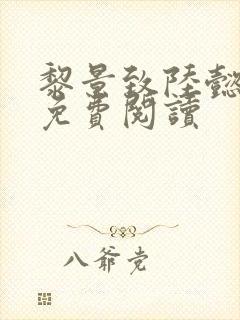 黎景致陸懿
免費閱讀
八爺党